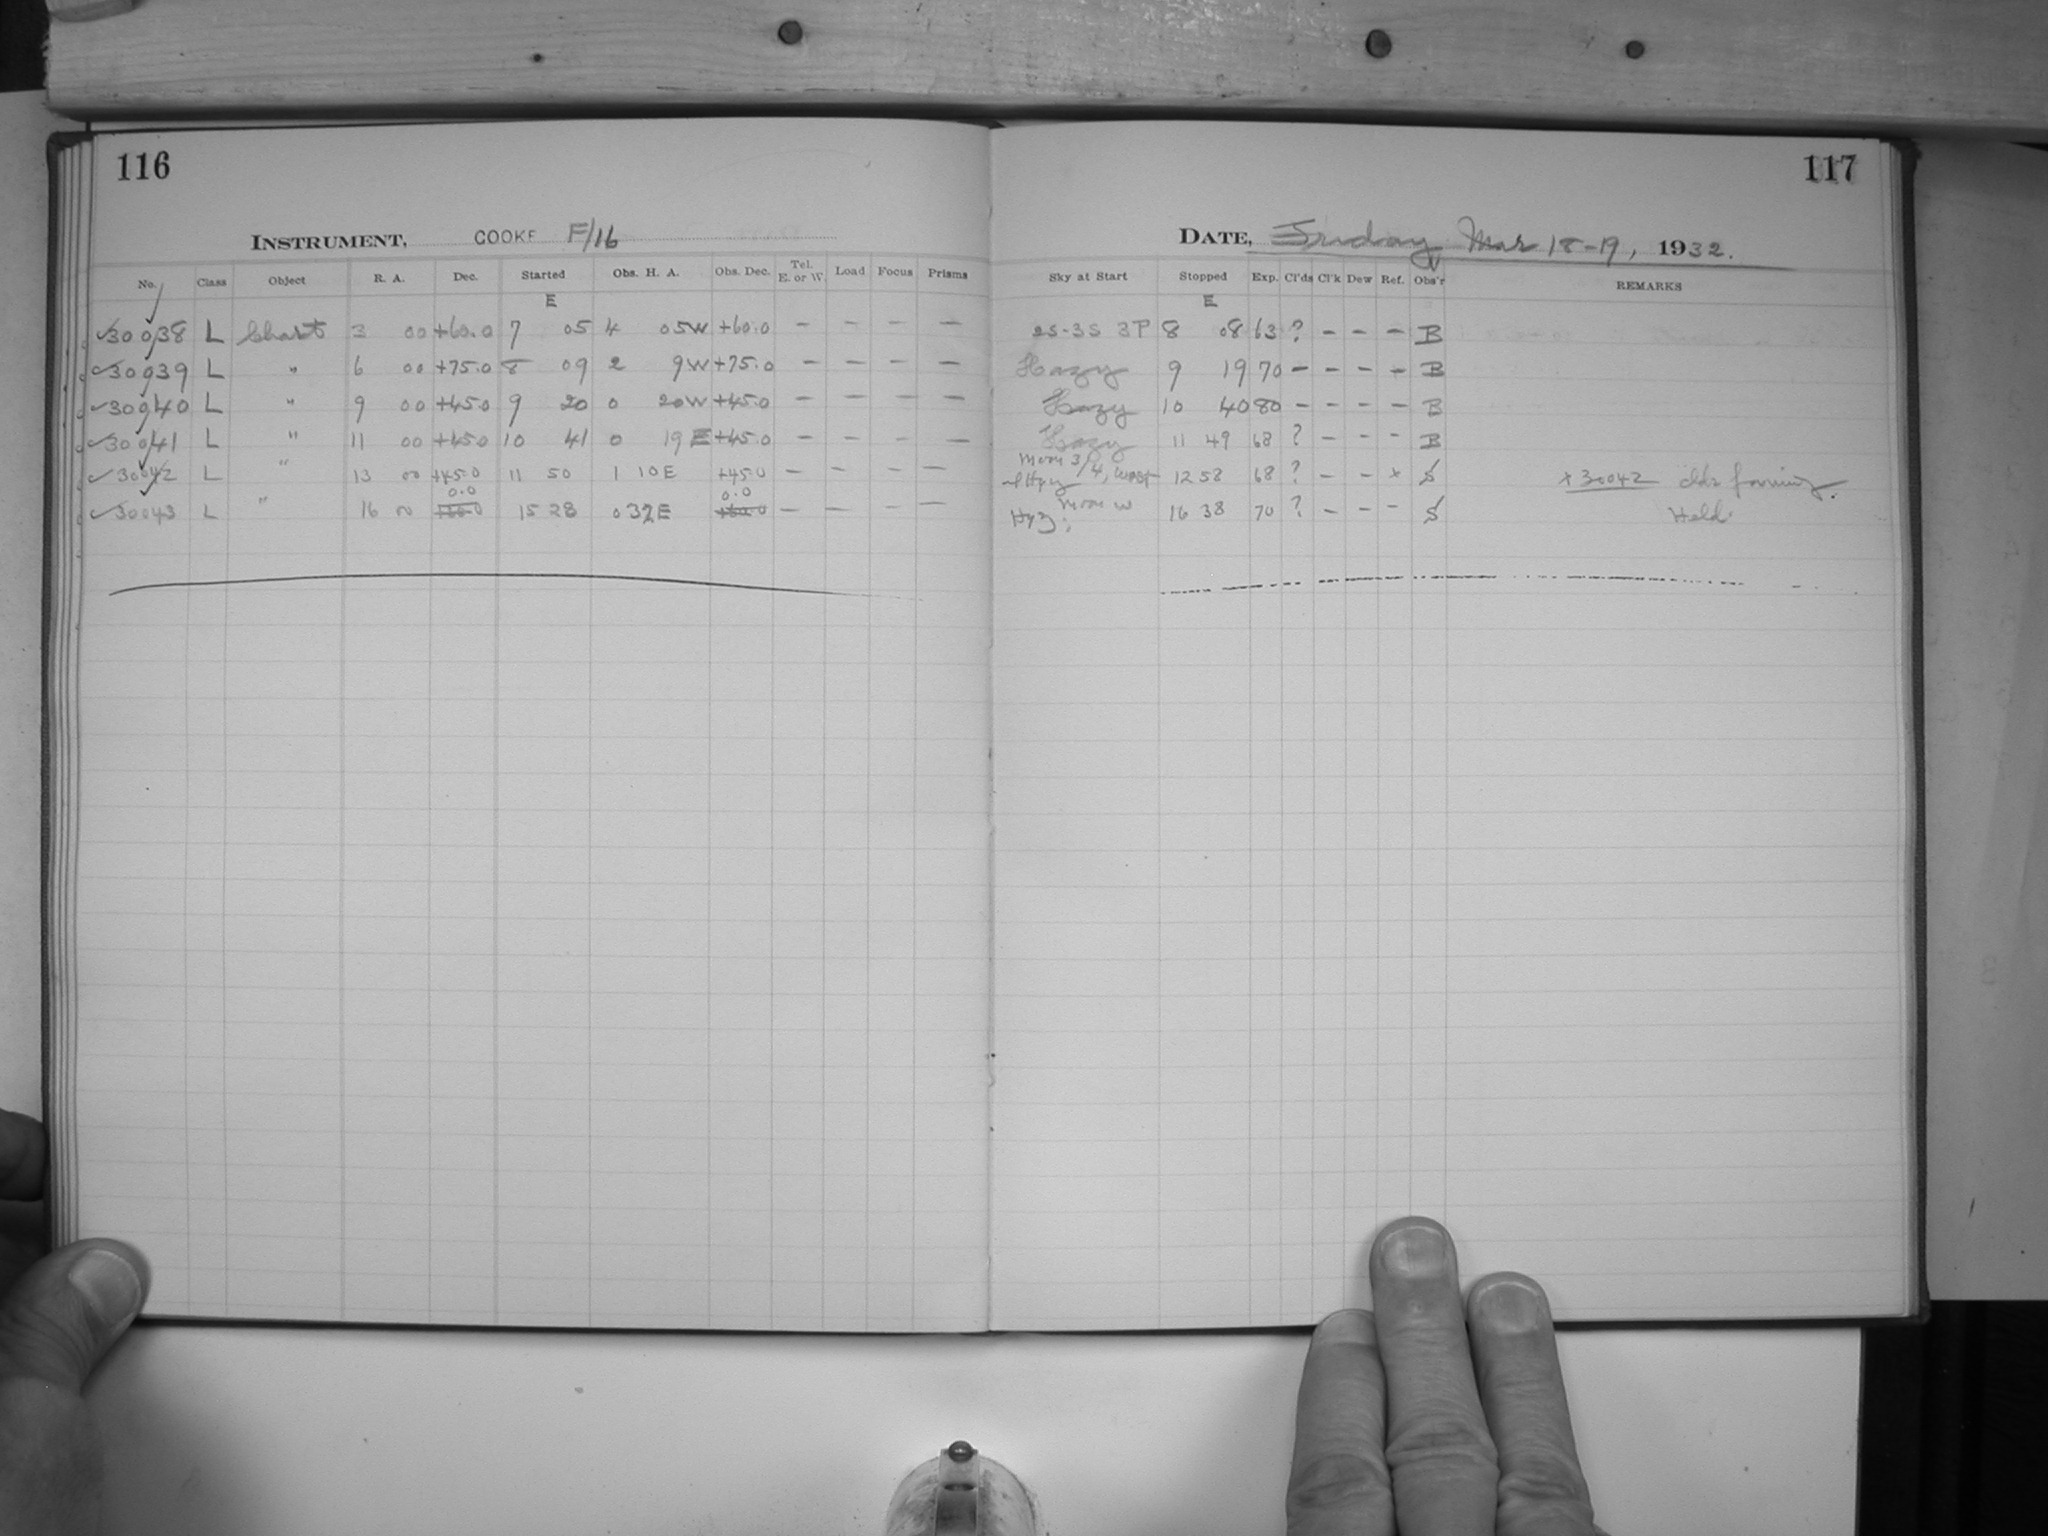 116
INSTRUMENT, COOKE F/16
No. Class Object R. A. Dec. Started Obs. H. A. Obs. Dec. Tel. E. or W. Load Focus Prisms
E
30038 L Chart 3 00 +60.0 7 05 4 05W +60.0 — — — —
30039 L " 6 00 +75.0 8 09 2 9W +75.0 — — — —
30040 L " 9 00 +45.0 9 20 0 20W +45.0 — — — —
30041 L " 11 00 +45.0 10 41 0 19 E +45.0 — — — —
30042 L " 13 00 +45.0 11 50 1 10E +45.0 — — — —
0.0 0.0
30043 L " 16 00 15 28 0 32E — — — —
117
DATE, Friday Mar 18-19, 1932.
Sky at Start Stopped Exp. Cl'ds Cl'k Dew Ref. Obs'r REMARKS
E
2S-3S 3P 8 08 63 ? — — — B
Hazy 9 19 70 — — — — B
Hazy 10 40 80 — — — — B
Hazy 11 49 68 ? — — — B
Moon 3/4, West
12 58 68 ? — — x S x 30042 clds forming.
Moon W
Hyz; 16 38 70 ? — — — S Held